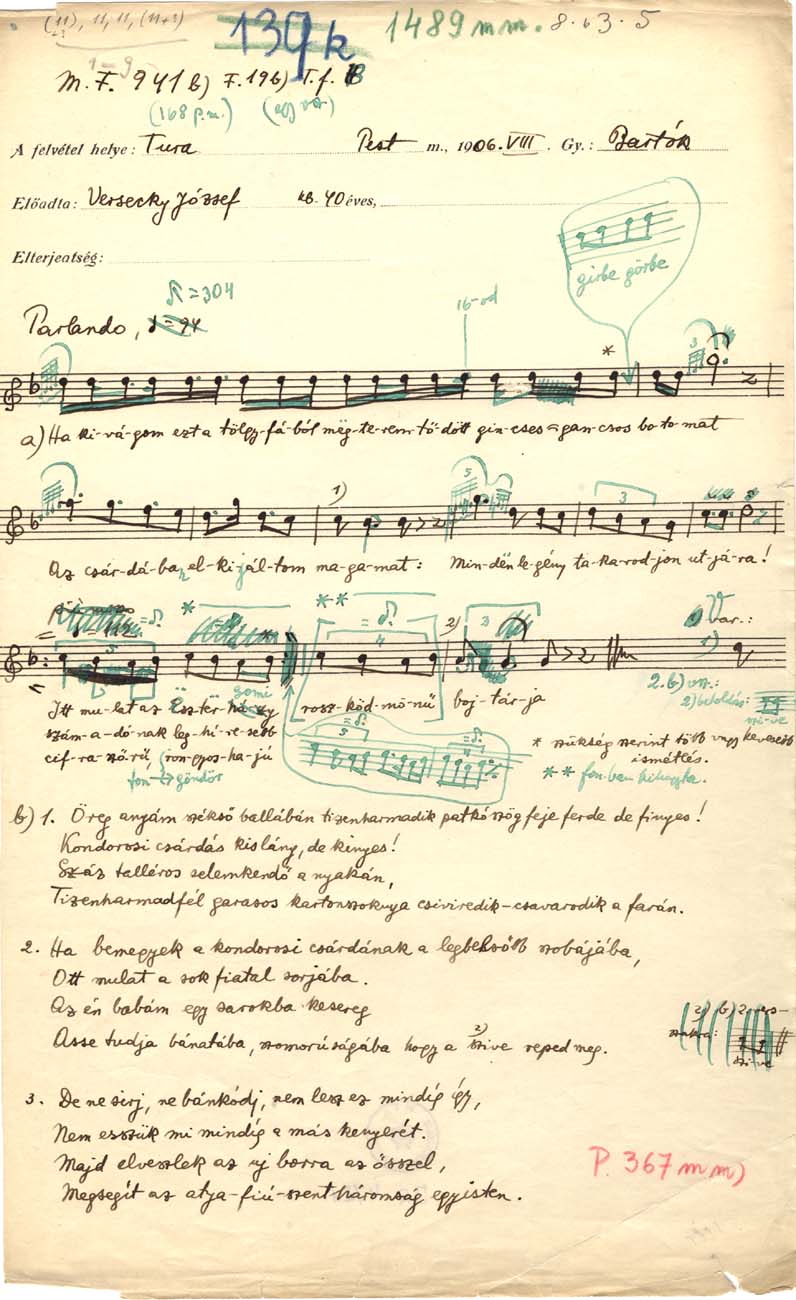 (11), 11, 11, (11+)
139 k
1489 mm. 8.63.5
1-9
M. F. 941 b) F. 196) T. f.
(168 p.m.)
A felvétel helye: Tura Pest m., 1906. VIII. Gy.: Bartók
Előadta: Versecky József kb. 40 éves,
Elterjeatség:
= 304
16-od
girbe görbe
Parlando,
*
3
a) Ha ki-vá-gom ezt a tölgy-fá-ból mëg-te-rem-tő-dött gin-cses-gan-csos bo-to-mat
1)
5
3
Az csár-dá-ba el-ki-jál-tom ma-ga-mat: Min-dën le-gény ta-ka-rod-jon ut-já-ra!
= 112
* **
5
4
2)
3
Var.:
1)
Itt mu-lat az Esz-tër- rosz-köd-mö-nű boj-tár-ja
gomi
2. b) vsz.:
2)
szi-ve
szám-a-dó-nak leg-hí-re-sebb
cif-ra-sző-rű, (ron-gyos-ha-jú
fon göndör
5
* szükség szerint több vagy kevesebb
ismétlés.
** fon-ban kihuzta.
b) 1. Öreg anyám székső ballábán tizenharmadik patkószög feje ferde de finyes!
Kondorosi csárdás kislány, de kinyes!
Száz talléros selemkendő a nyakán,
Tizenharmadfél garasos kartonszoknya csiviredik-csavarodik a farán.
2. Ha bemegyek a kondorosi csárdának a legbelsőbb szobájába,
Ott mulat a sok fiatal sorjába.
Az én babám egy sarokba kesereg
Asse tudja bánatába, szomorúságába hogy a 2) szive reped meg.
2) b) 2. vers-
szakra:
szi-ve
3. De ne sirj, ne bánkódj, nem lesz ez mindíg így,
Nem esszük mi mindíg a más kenyerét.
Majd elveszlek az uj borra az ősszel,
Megsegít az atya-fiú-szent háromság egyisten.
P. 367 mm)